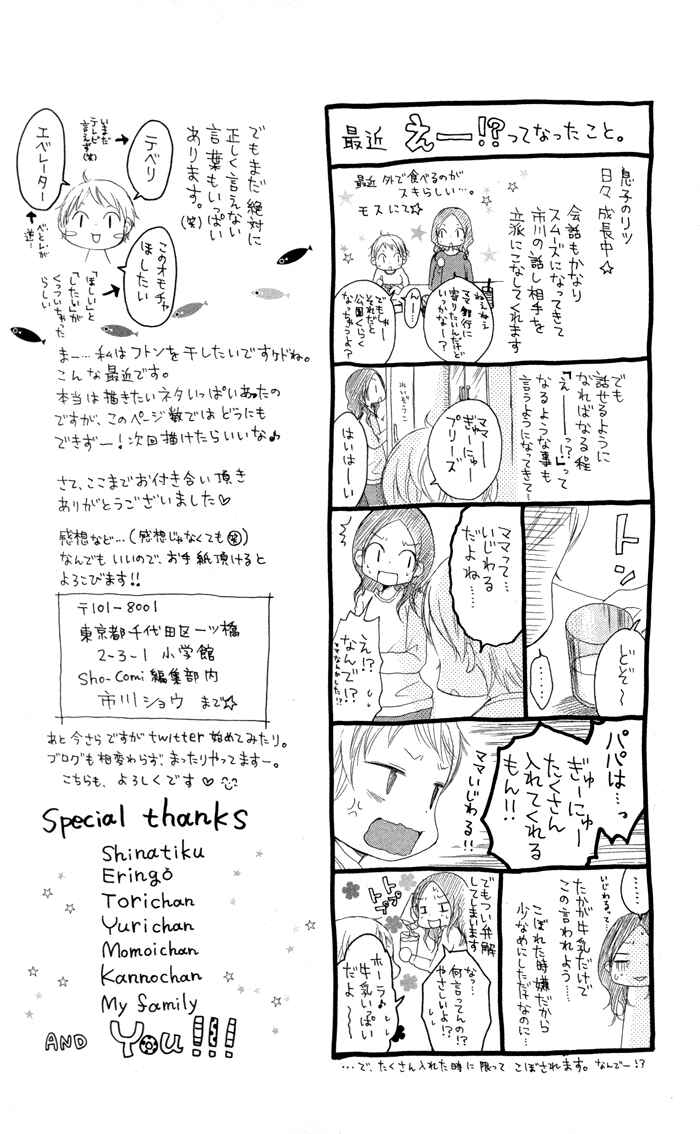 最近 えー!?ってなったこと。
息子のリツ
日々 成長中☆
会話もかなり
スムーズになってきて
市川の話し相手を
立派にこなしてくれます
最近 外で食べるのが
スキらしい…。
モスにて☆
ねぇねぇ
ママ銀行に
寄りたいんだけど
いっかなー?
んー…
でもしゃー
それだと
公園くらく
なっちゃうよ?
でも
話せるように
なればなる程
「えーーっ!?」って
なるような事も
言うようになってきてー
れいぞうこ
ママー
ぎゅーにゅー
プリーズ
はいはーい
トン
どぞ〜
……
ママって…
いじわる
だよね……
え!?
なんで!?
ママなんかした!?
パパは…っ
ぎゅーにゅー
たくさん
入れてくれる
もん!!
ママいじわる!!
……
いじわるって…
たかが牛乳だけで
この言われよう…
こぼれた時嫌だから
少なめにしただけなのに…
でもつい弁解
してしまいます
トプトプ
なっ…
何言ってんの!?
やさしいよ!?
ホーラ♪
牛乳いっぱい
だよ〜
…で、たくさん入れた時に限って こぼされます。なんでー!?
でもまだ絶対に
正しく言えない
言葉もいっぱい
あります。(笑)
テベリ
いまだ
テレビと
言えず(笑)
エベレーター
べとれが
逆…
このオモチャ
ほしたい
「ほしい」と
「したい」が
くっついちゃった
らしい
まー…私はフトンを干したいですケドね。
こんな最近です。
本当は描きたいネタいっぱいあったの
ですが、このページ数ではどうにも
できずー!次回描けたらいいな♪
さて、ここまでお付き合い頂き
ありがとうございました♡
感想など…(感想じゃなくても㊤)
なんでもいいので、お手紙頂けると
よろこびます!!
〒101-8001
東京都千代田区一ツ橋
2-3-1 小学館
Sho-Comi編集部内
市川ショウ まで☆
あと今さらですがtwitter始めてみたり。
ブログも相変わらず、まったりやってますー。
こちらも、よろしくです♡
Special thanks
Shinatiku
Eringo
Torichan
Yurichan
Momoichan
Kannochan
My family
AND You!!!